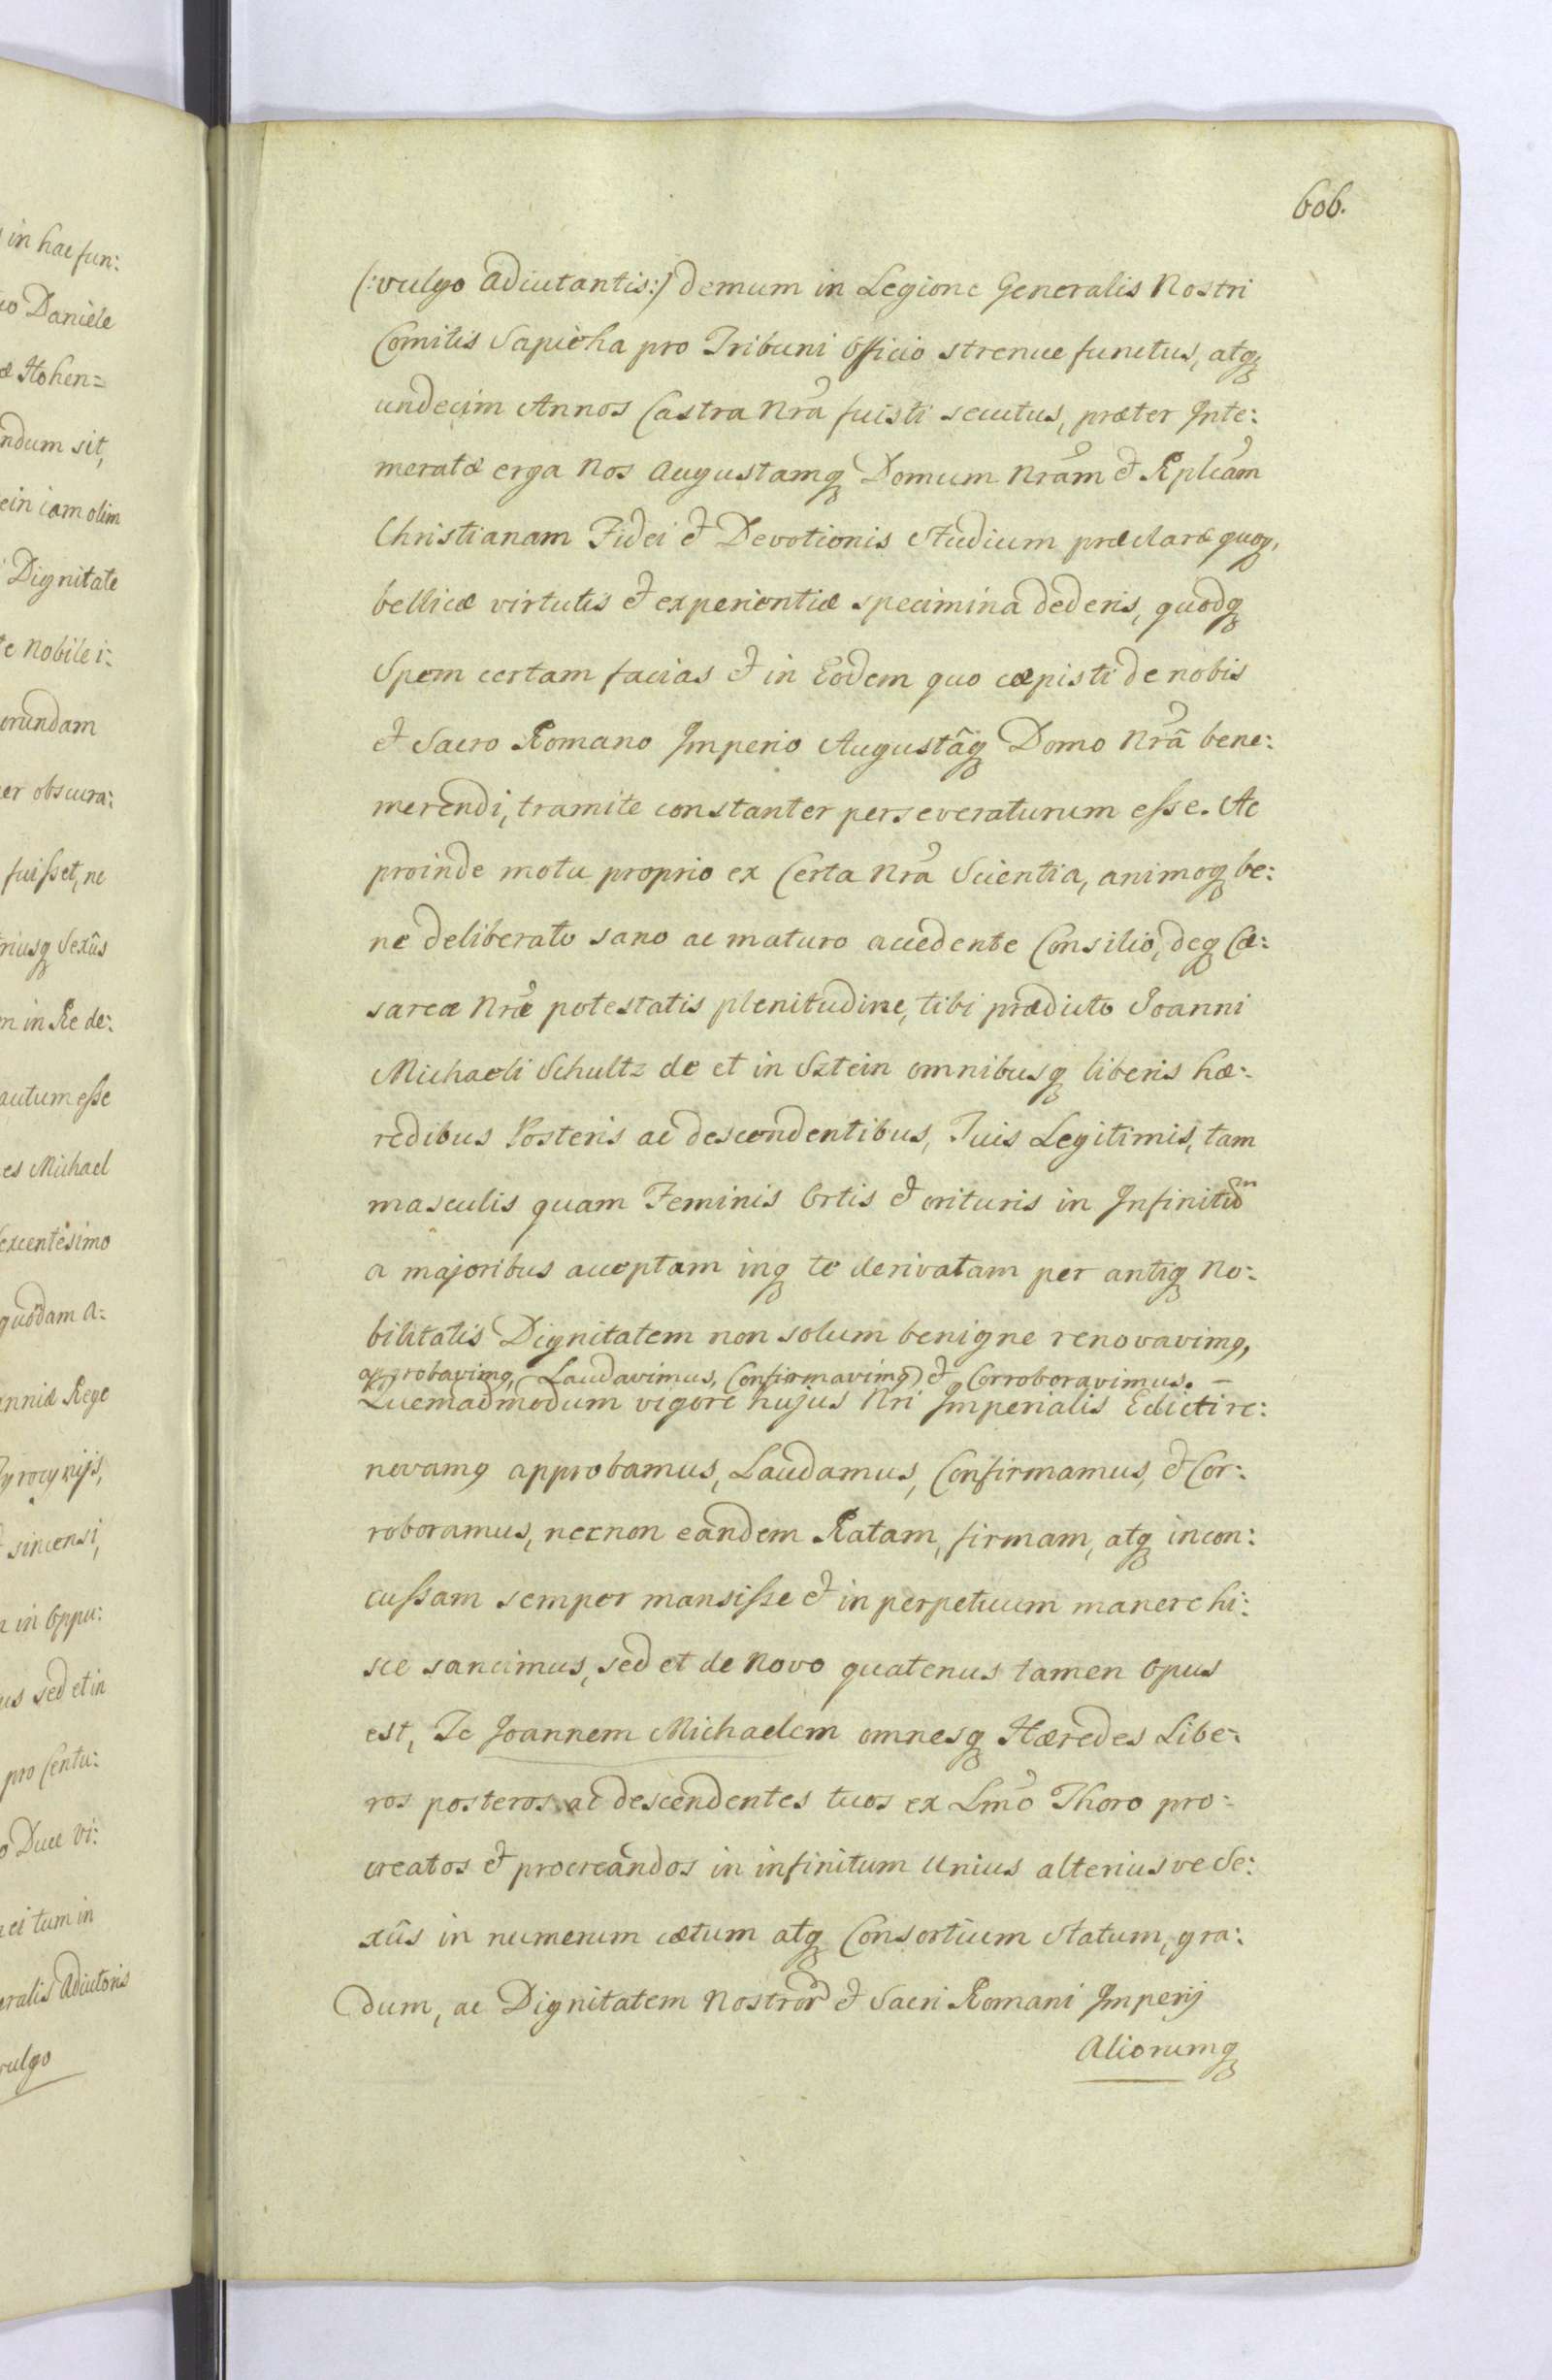 in hac fun:
Daniele
Hohen=
ndum sit,
ein iam olim
Dignitate
te nobile i:
orundam
er obscura:
fuisset, ne
riusq Sexûs
in Re de:
autum esse
es Michael
excentesimo
quodam a:
annis Rege
Tyrocynijs,
sincensi,
in Oppu:
us sed et in
pro Centu:
o Duce Vi:
ei tum in
eralis Adiutoris
vulgo
606.
(:vulgo Adiutantis:) demum in Legione Generalis Nostri
Comitis Sapieha pro Tribuni Officio strenue functus, atq
undecim Annos Castra Nrã fuisti secutus, præter Inte:
meratæ erga Nos Augustamq Domum Nrãm et Rplicãm
Christianam Fidei et Devotionis Studium præclaræ quoq,
bellicæ virtutis et experientiæ specimina dederis, quodq
Spem certam facias et in Eodem quo cæpisti de nobis
et Sacro Romano Imperio Augustâq Domo Nrã bene:
merendi, tramite constanter perseveraturum esse. Ac
proinde motu proprio ex Certa Nrã Scientia, animoq be:
ne deliberato sano ac maturo accedente Consilio, deq Cæ:
sareæ Nrẽ potestatis plenitudine, tibi prædicto Joanni
Michaeli Schultz de et in Sztein omnibusq liberis hæ:
redibus Posteris ac descendentibus, Tuis Legitimis, tam
masculis quam Feminis Ortis et orituris in Infinitum
a majoribus acceptam inq te derivatam per antiq No:
bilitatis Dignitatem non solum benigne renovavimq,
approbavimq, Laudavimus, Confirmavimq et Corroboravimus. –
Quemadmodum vigore hujus Nri Imperialis Edicti re:
novamq approbamus, Laudamus, Confirmamus, et Cor:
roboramus, necnon eandem Ratam, firmam, atq incon:
cussam semper mansisse et in perpetuum manere hi:
sce sancimus, sed et de Novo quatenus tamen Opus
est, Te Joannem Michaelem omnesq Hæredes Libe:
ros posteros ac descendentes tuos ex Lmõ Thoro pro:
creatos et procreandos in infinitum Unius alterius ve Se:
xûs in numerum cætum atq Consortium Statum, gra:
dum, ac Dignitatem Nostror et Sacri Romani Imperij
Aliorumq